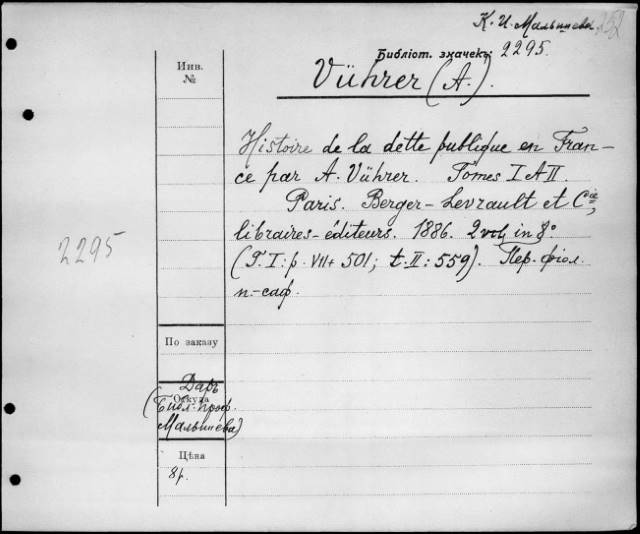 К. И. Малышева 252
Библіот. значекъ: 2295.
Инв.
№
Vührer (A.).
Histoire de la dette publique en Fran-
ce par A. Vührer. Tomes I A II.
Paris. Berger-Levrault et Cie,
libraires-éditeurs. 1886. 2 vol. in 8°
(T. I: p. VII + 501; t. II: 559). Пер. фіол.
п-саф.
2295
По заказу
Даръ
Откуда
(Библ. проф.
Малышева)
Цѣна
8 р.